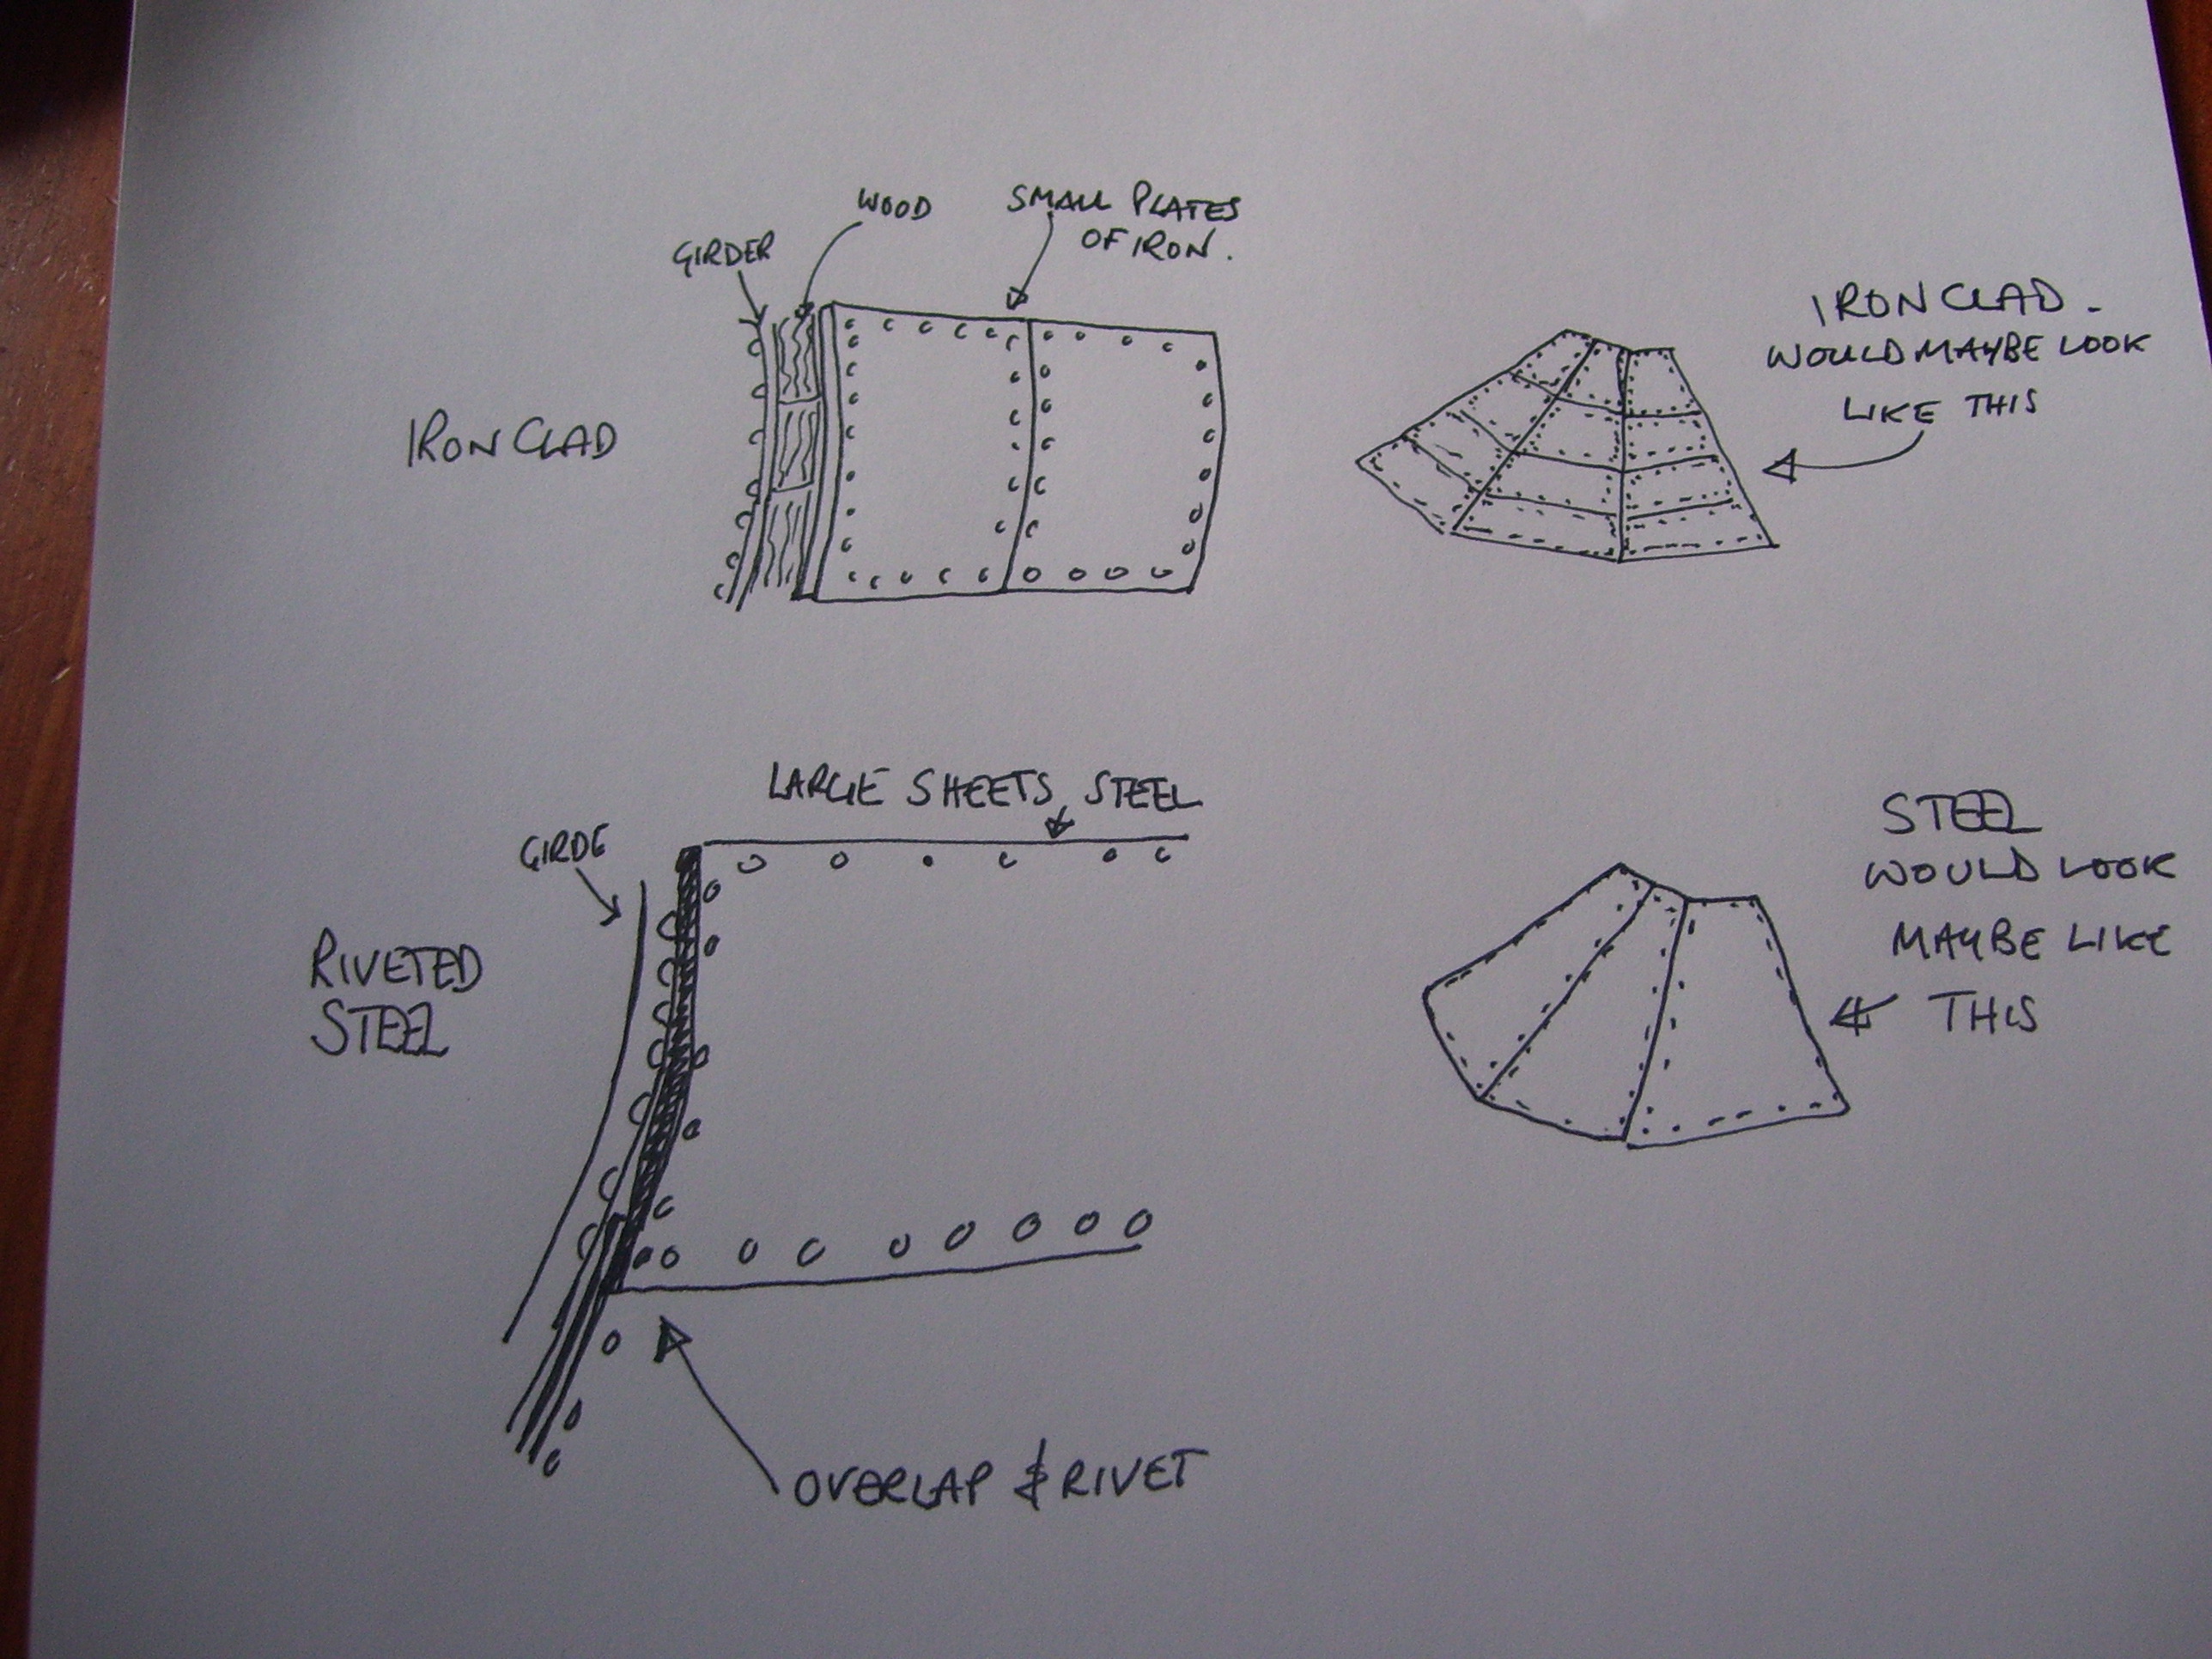 GIRDER
WOOD
SMALL PLATES
OF IRON.
IRON CLAD
IRON CLAD -
WOULD MAYBE LOOK
LIKE THIS
LARGE SHEETS STEEL
GIRDE
RIVETED
STEEL
STEEL
WOULD LOOK
MAYBE LIKE
THIS
OVERLAP & RIVET